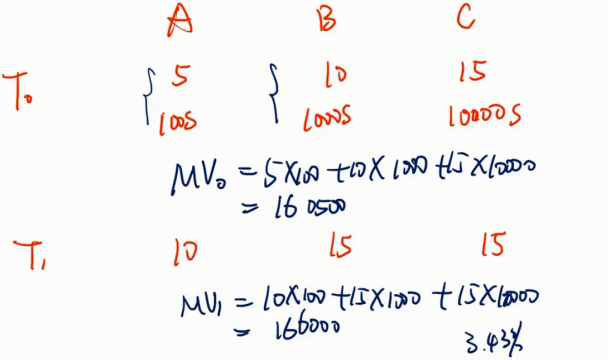 A B C
T₀ 5 10 15
100S 1000S 10000S
MV₀ = 5×100 + 10×1000 + 15×10000
= 160500
T₁ 10 15 15
MV₁ = 10×100 + 15×1000 + 15×10000
= 166000 3.43%